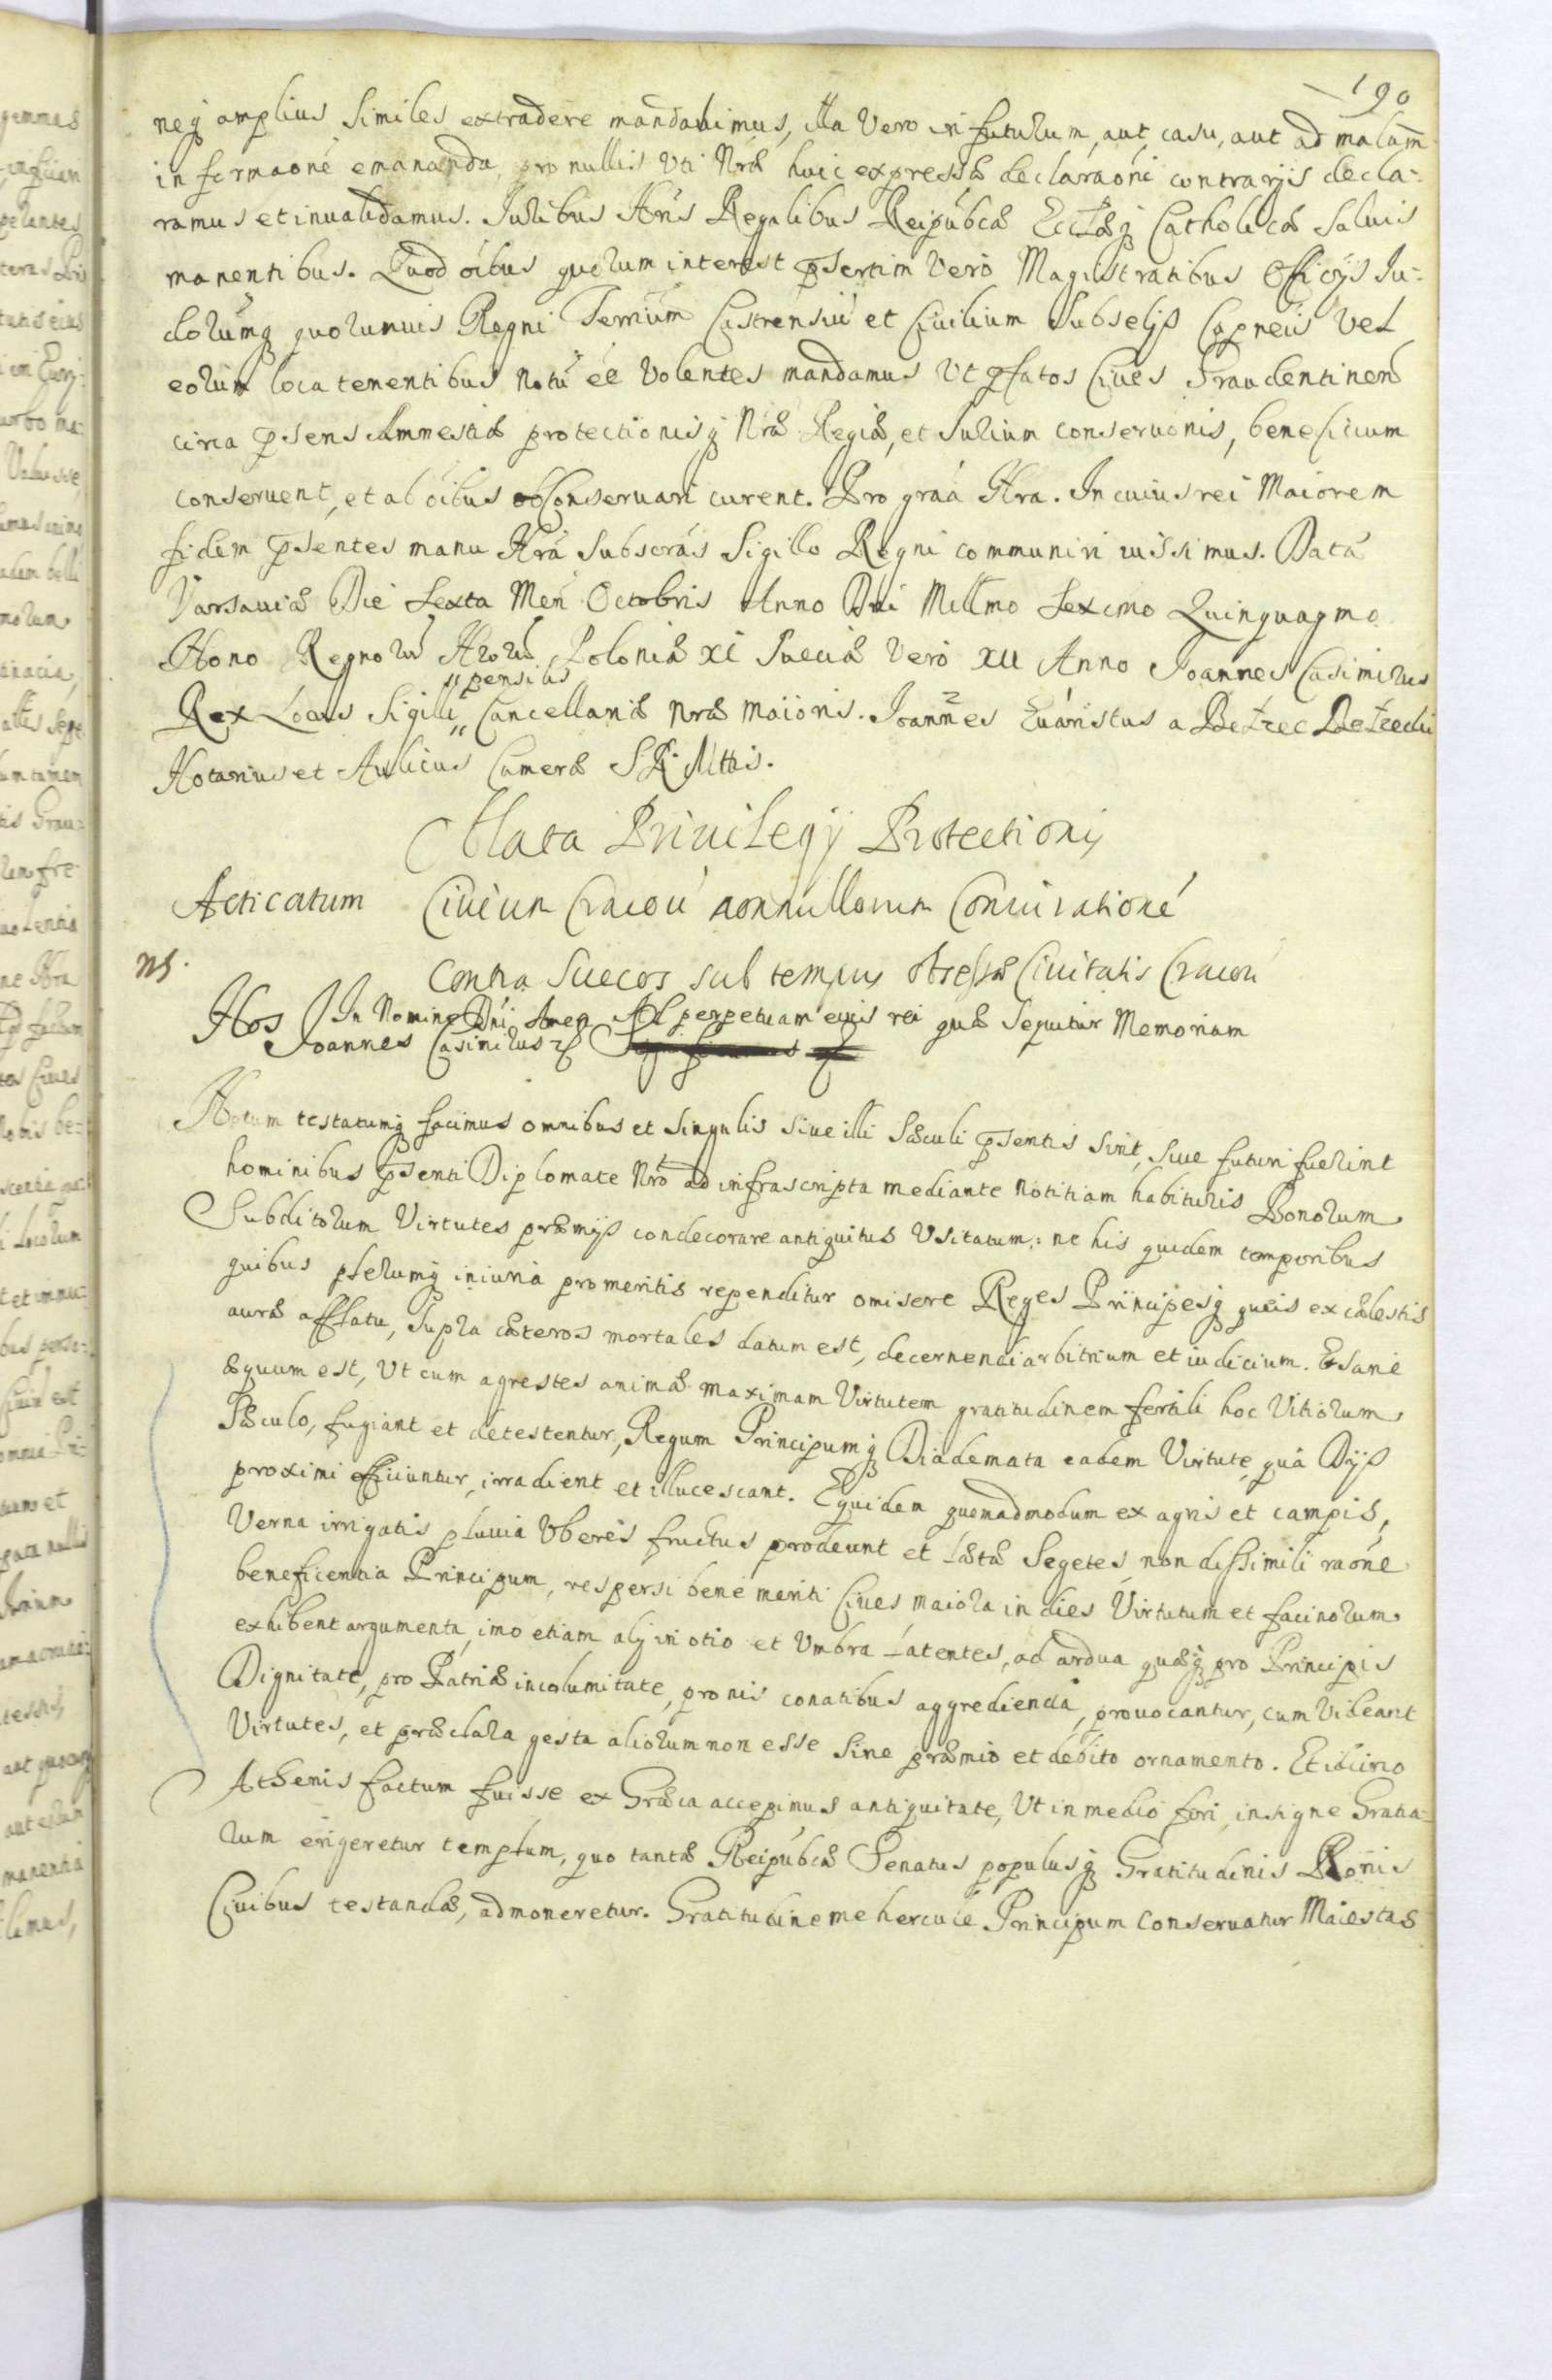 190
neq amplius Similes extradere mandabimus, illa Vero in futurum, aut casu, aut ad malam
informaōné emananda, pro nullis Uti Nrae huic expressae declaraōni contrarijs decla-
ramus et inualidamus. Iuribus Nris Regalibus Reipubcae Ecclaeq Catholicae Saluis
manentibus. Quod oibus quorum interest pSertim Vero Magistratibus Officijs Iu-
dorumq quorumuis Regni Terrarum Castrensiu et Ciuilium Subselijs Capneis Vel
eorum loca tenentibus notu ee Volentes mandamus Ut pfatos Ciues Graudentinen
circa pSens Amnestiae protectionisq Nrae Regiae, et Iurium conseruōnis, beneficium
conseruent, et ab oibus obConseruari curent. Pro graa Nra. In cuius rei Maiorem
fidem pSentes manu Nra Subscras Sigillo Regni communiri iussimus. Data
Varsauiae Die Sexta Men Octobris Anno Dni Millmo Sexcmo Quinquagmo
Nono Regnorum Nrorum Poloniae XI Sueciae Vero XII Anno Joannes Casimirus
pensilis
Rex Locus Sigilli Cancellariae Nrae Maioris. Joannes Euaristus a Bełzec Bełzecki
Notarius et Aulicus Camerae S R Mttis.
Oblata Priuilegij Protectionis
Acticatum Ciuium Cracou nonnullorum Coniurationé
contra Suecos sub tempus obsessae Ciuitatis Cracou
ns.
In Nomine Dni Amen Ad perpetuam euis rei quae Sequitur Memoriam
Nos Joannes Casimirus
Notum testatumq facimus omnibus et Singulis Siue illi Saeculi pSentis Sint, Siue futuri fuerint
hominibus pSenti Diplomate Nro ad infrascripta mediante notitiam habituris Bonorum
Subditorum Virtutes praemijs condecorare antiquitus Usitatum: ne his quidem temporibus
quibus plerumq iniuria pro meritis rependitur omisere Reges Principesq queis ex caelestis
aurae afflatu, Supra caeteros mortales datum est, decernendi arbitrium et iudicium. Et sane
aequum est, Ut cum agrestes animae maximam Virtutem gratitudinem fertili hoc Vitiorum
Saeculo, fugiant et detestentur, Regum Principumq Diademata eadem Virtute, quâ Dijs
proximi efficiuntur, irradient et illucescant. Equidem quemadmodum ex agris et campis,
Verna irrigatis pluuia Uberes fructus prodeunt et laetae Segetes non dissimili raōne
beneficentia Principum, respersi bene meriti Ciues maiora in dies Virtutum et facinorum
exhibent argumenta, imo etiam alij in otio et Umbra latentes, ad ardua quaeq pro Principis
Dignitate, pro Patriae incolumitate, pronis conatibus aggredienda, prouocantur, cum Videant
Virtutes, et praeclara gesta aliorum non esse Sine praemio et debito ornamento. Et idcirco
Athenis factum fuisse ex Graeca accepimus antiquitate, Ut in medio fori, insigne Gratia-
rum erigeretur templum, quo tantae Reipubcae Senatus populusq Gratitudinis Bonis
Ciuibus testandae, admoneretur. Gratitudine me hercule Principum conseruatur Maiestas